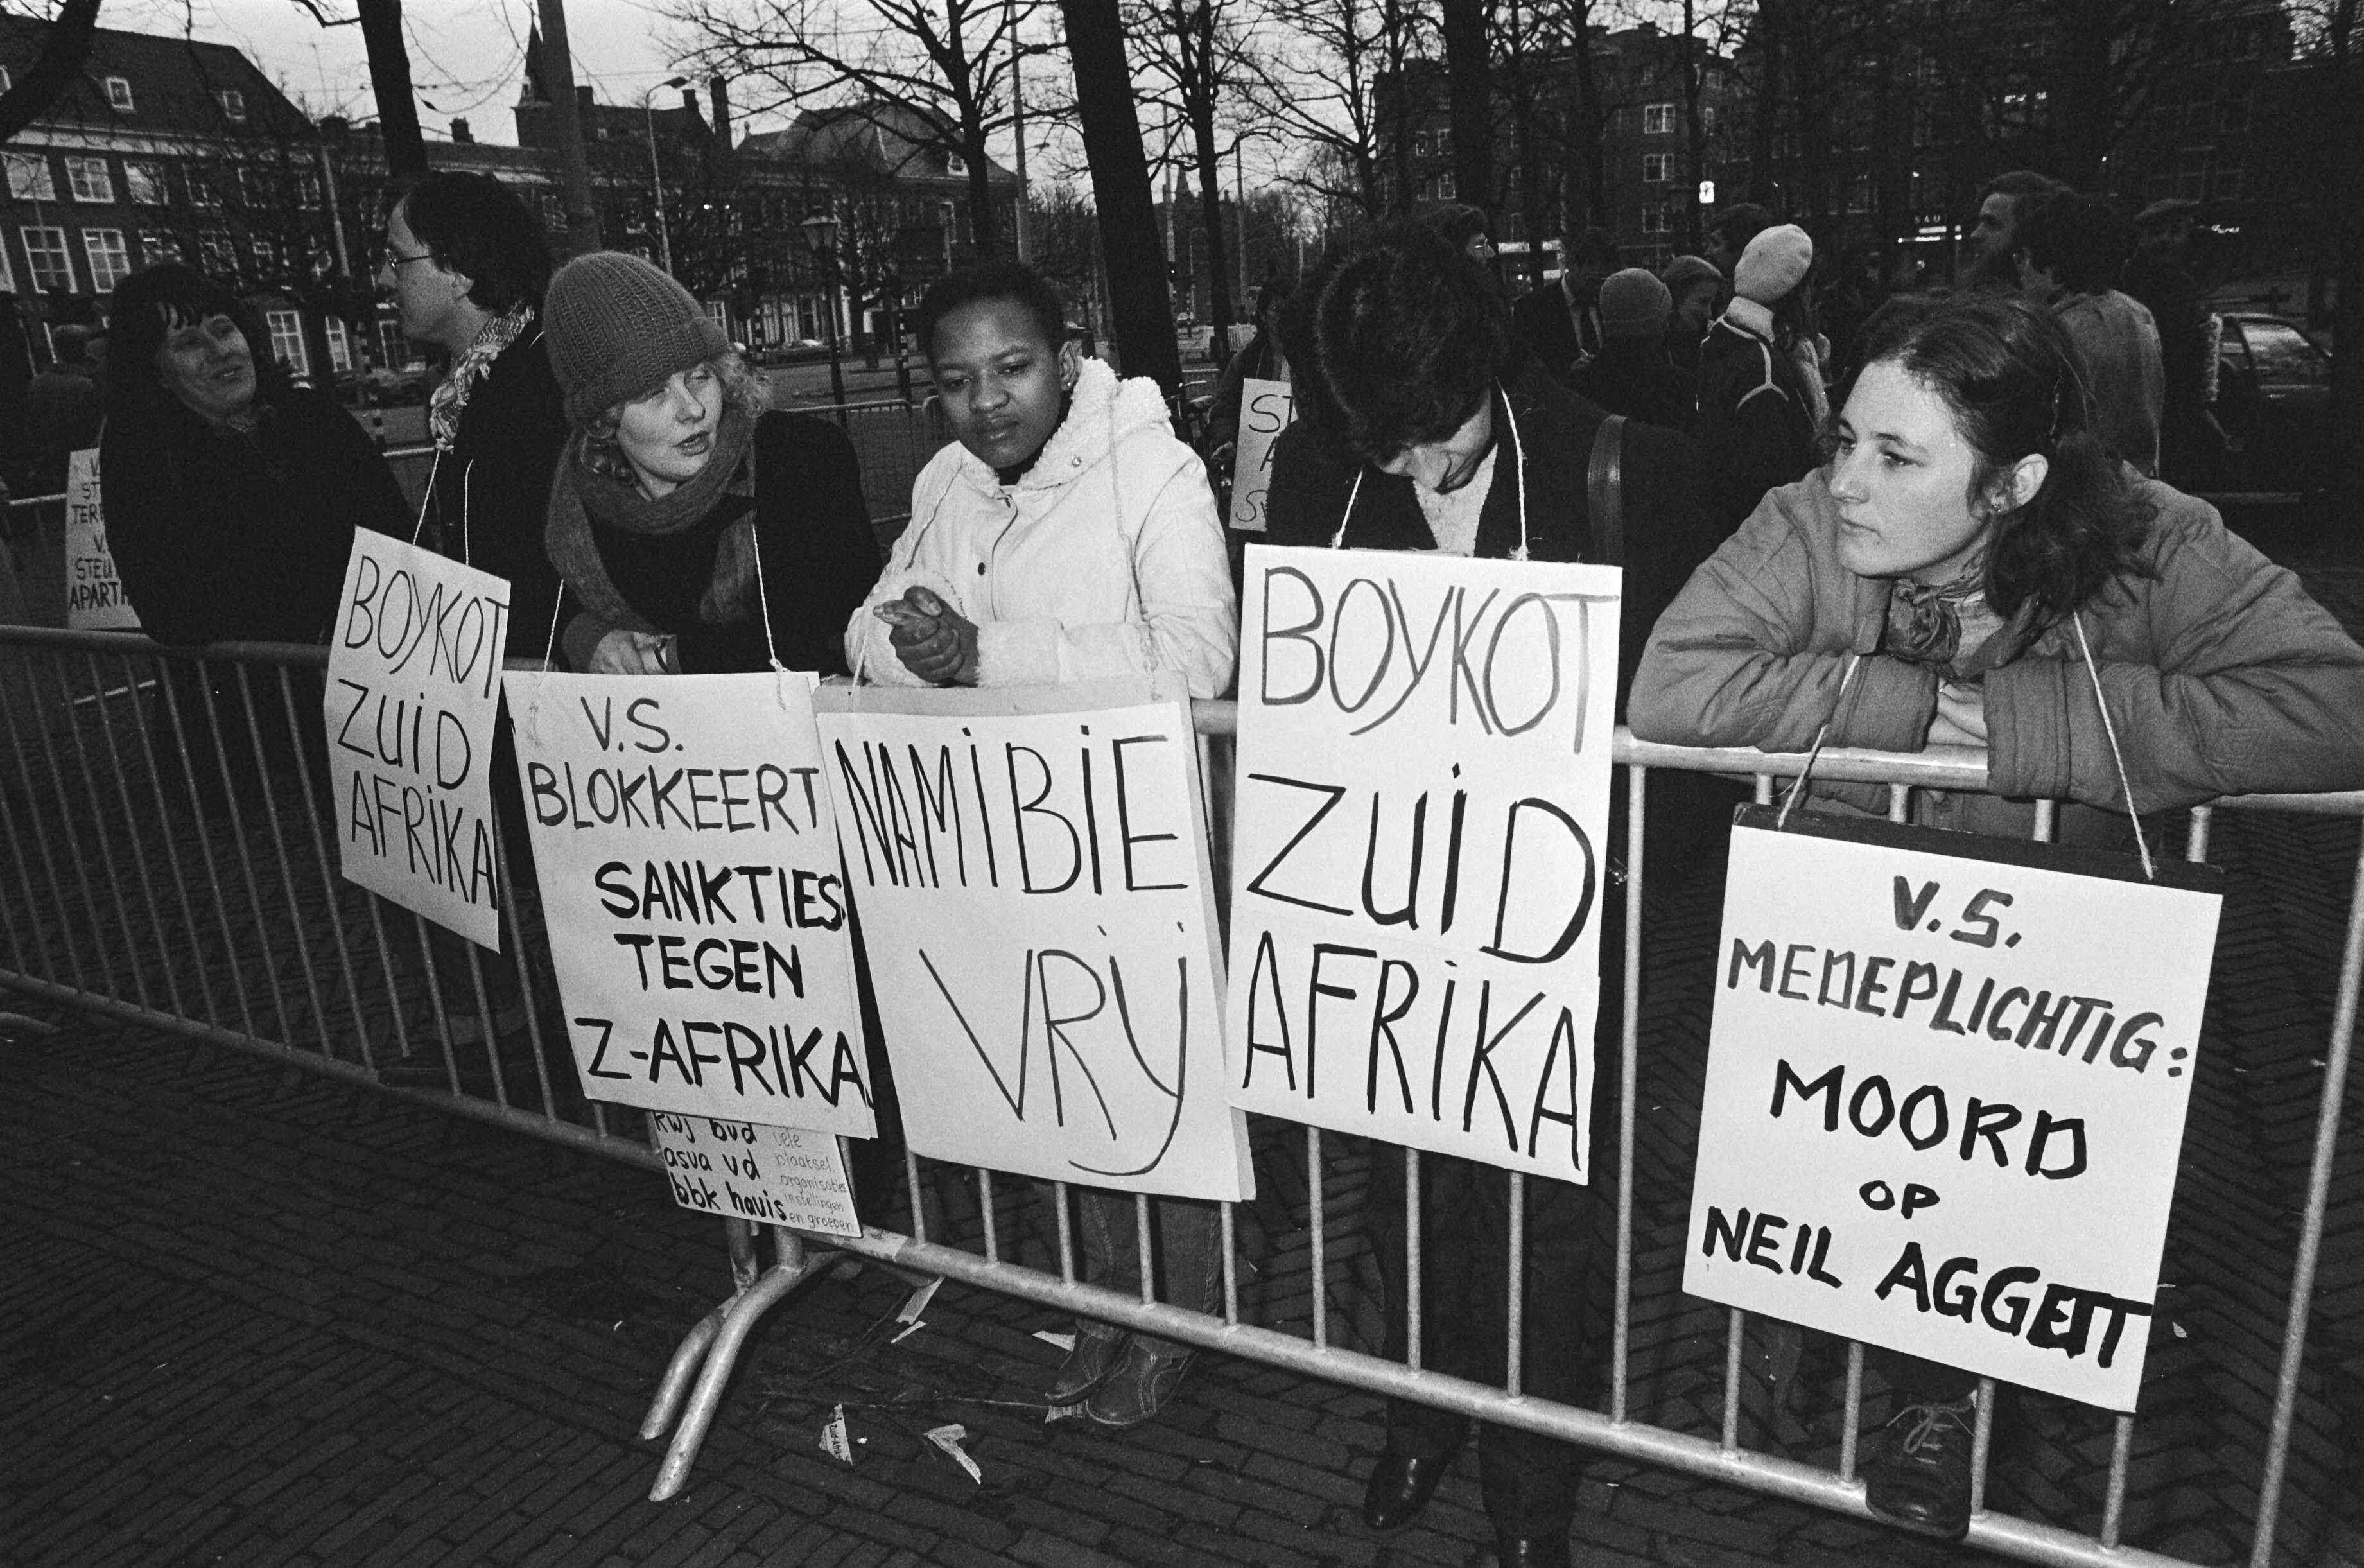 TER
STEU
APARTH
BOYKOT
ZUID
AFRIKA
V.S.
BLOKKEERT
SANKTIES
TEGEN
Z-AFRIKA
kwj bvd
asva vd
bbk hauis
vele
plaatsel.
organisaties
instellingen
en groepen
NAMIBIE
VRIJ
ST
BOYKOT
ZUID
AFRIKA
V.S.
MEDEPLICHTIG:
MOORD
OP
NEIL AGGETT